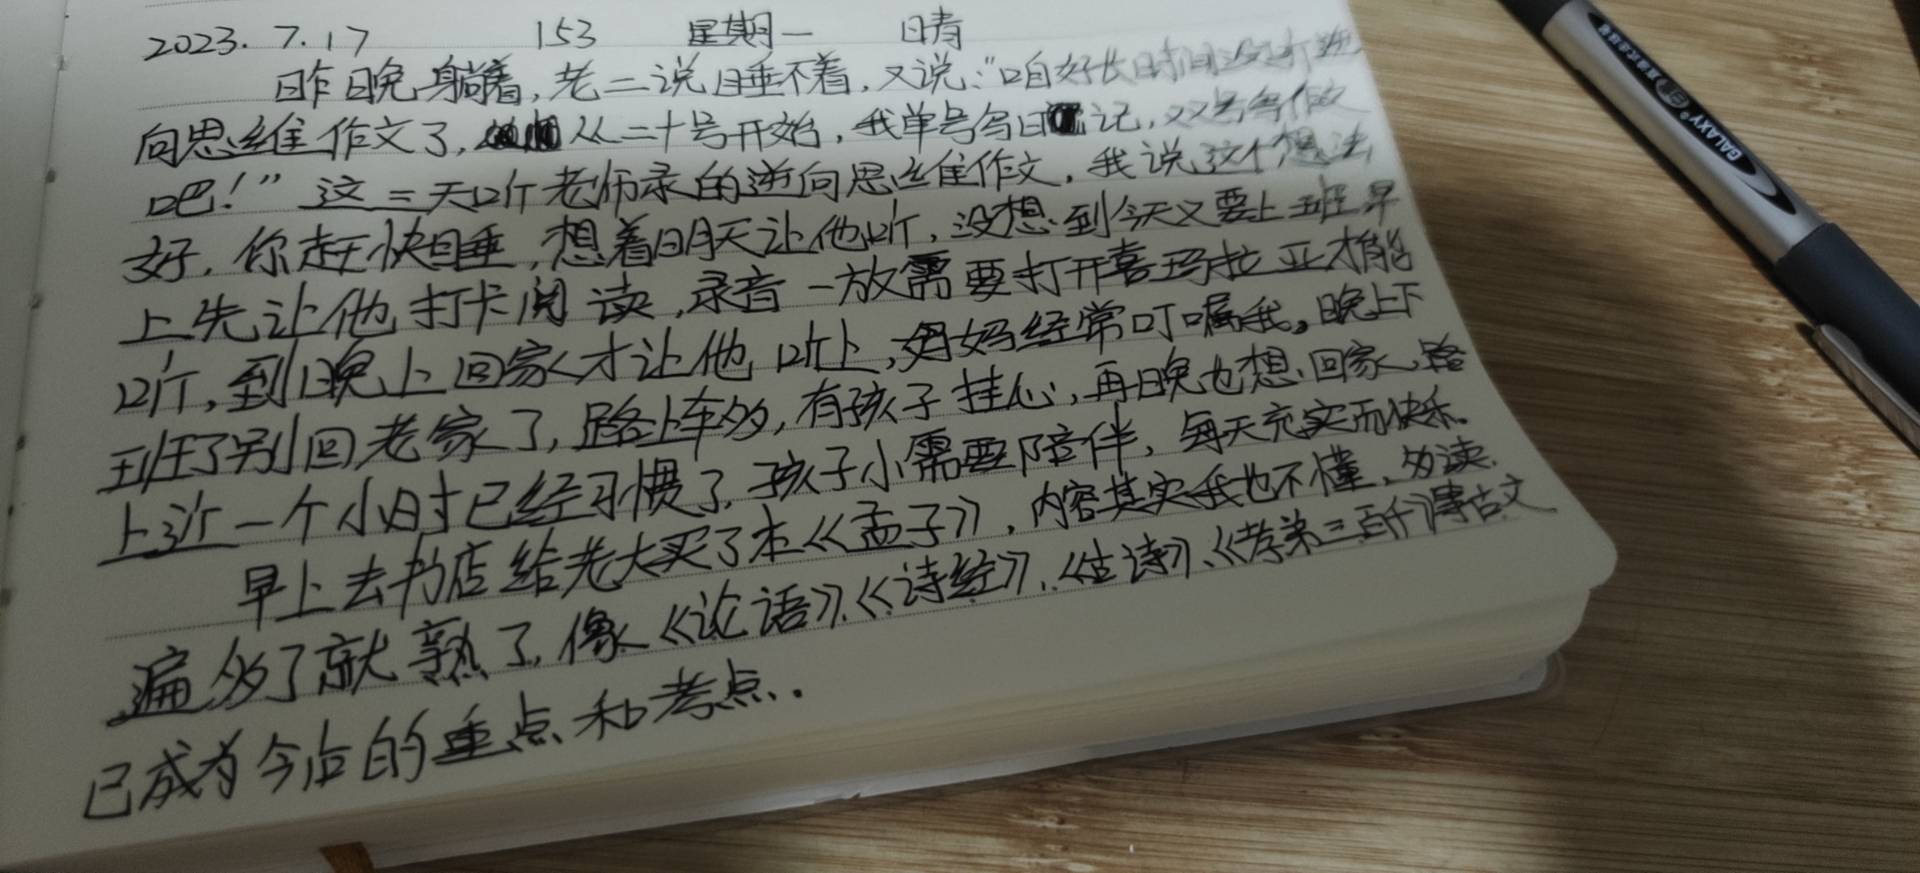 2023.7.17 153 星期一 晴
昨晚躺着,老二说睡不着,又说:“咱好长时间没打逆
向思维作文了,从二十号开始,我单号写日记,双号写作文
吧!”这二天听老师录的逆向思维作文,我说这个想法
好,你赶快睡,想着明天让他听,没想到今天又要上班早
上先让他打卡阅读,录音一放需要打开喜玛拉亚才能
听,到晚上回家才让他听上,妈妈经常叮嘱我。晚上下
班了别回老家了,路上车多,有孩子挂心,再晚也想回家,路
上近一个小时已经习惯了,孩子小需要陪伴,每天充实而快乐.
早上去书店给老大买了本《孟子》,内容其实我也不懂,多读.
遍多了就熟了,像《论语》.《诗经》.《 诗》、《 弟三百千》等古文
已成为今后的重点和考点.
GALAXY